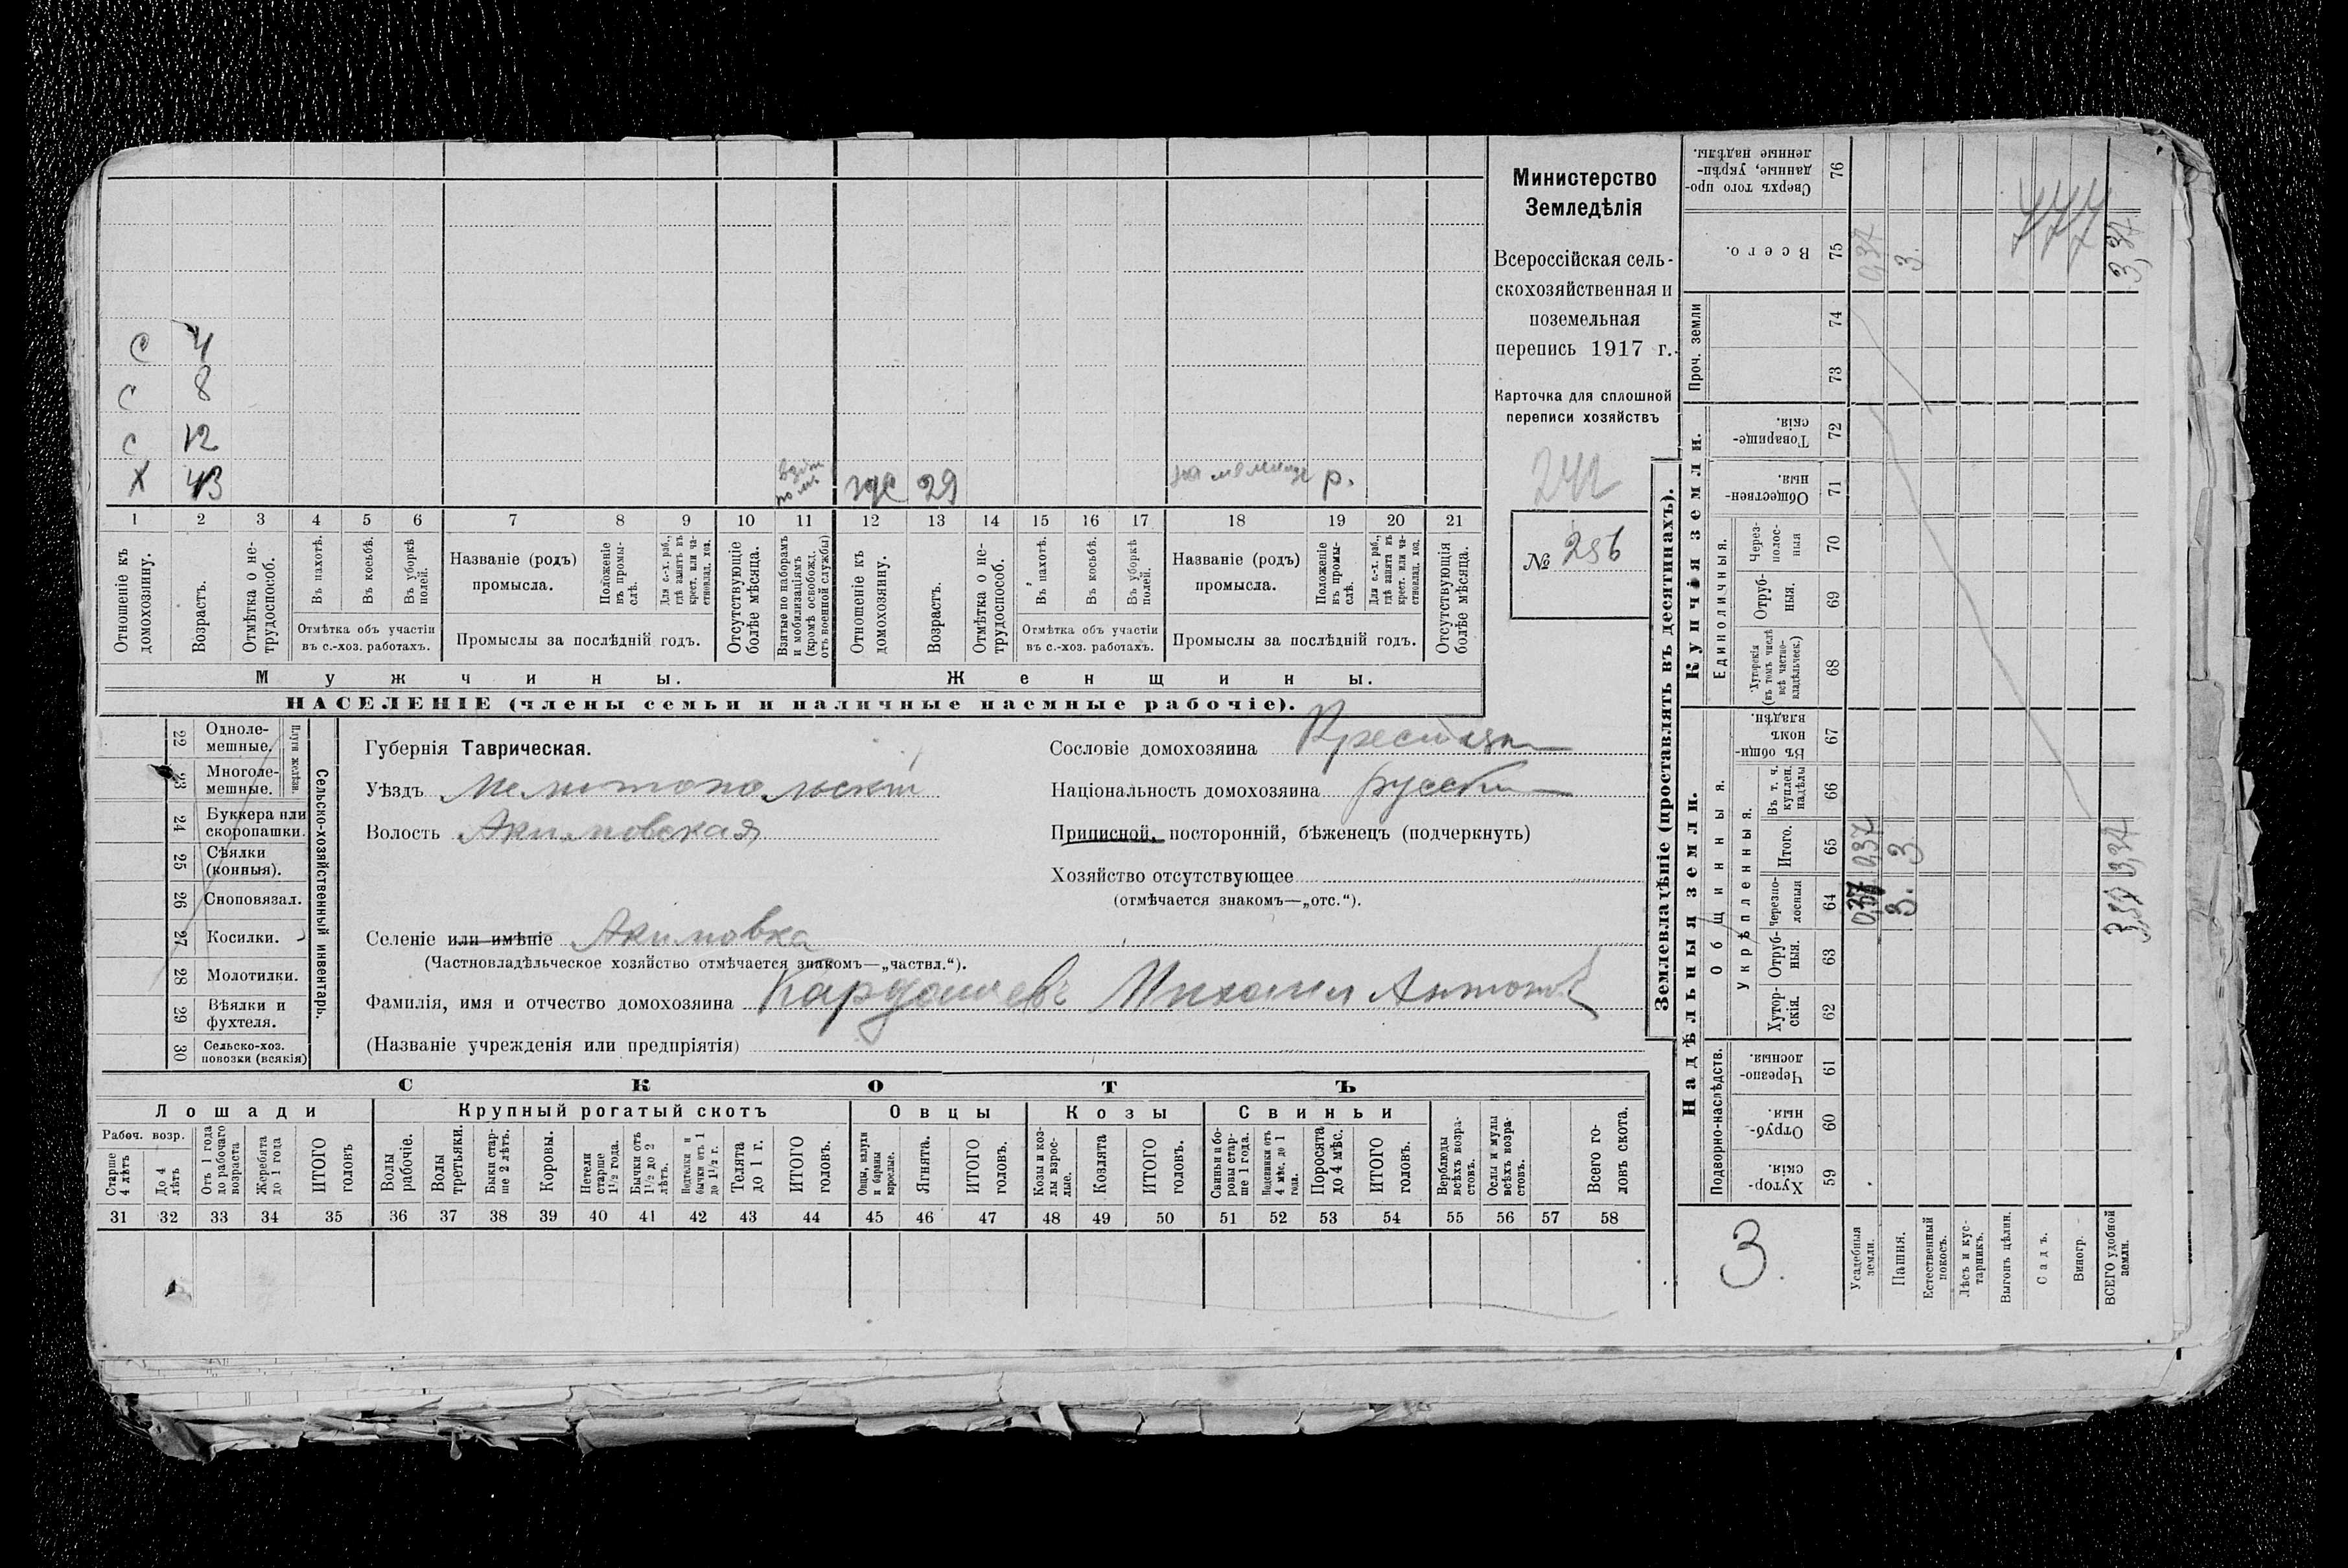 С 4
С 8
С 12
Х 43 взят по мъ же 29 на мельнице р.
1 2 3 4 5 6 7 8 9 10 11 12 13 14 15 16 17 18 19 20 21
Отношеніе къ домохозяину.
Возрастъ.
Отмѣтка о не-трудоспособ.
Въ пахотѣ.
Въ косьбѣ.
Въ уборкѣ полей.
Отмѣтка объ участіи
въ с.-хоз. работахъ.
Названіе (родъ)
промысла.
Положеніе въ промы-слѣ.
Для с.-х. раб., гдѣ занятъ въ крест. или ча-стновлад. хоз.
Промыслы за послѣдній годъ.
Отсутствующіе болѣе мѣсяца.
Взятые по наборамъ и мобилизаціямъ (кромѣ освобожд. отъ военной службы)
Отношеніе къ домохозяину.
Возрастъ.
Отмѣтка о не-трудоспособ.
Въ пахотѣ.
Въ косьбѣ.
Въ уборкѣ полей.
Отмѣтка объ участіи
въ с.-хоз. работахъ.
Названіе (родъ)
промысла.
Положеніе въ промы-слѣ.
Для с.-х. раб., гдѣ занятъ въ крест. или ча-стновлад. хоз.
Промыслы за послѣдній годъ.
Отсутствующія болѣе мѣсяца.
Мужчины. Женщины.
НАСЕЛЕНІЕ (члены семьи и наличные наемные рабочіе).
Министерство
Земледѣлія
Всероссійская сель-
скохозяйственная и
поземельная
перепись 1917 г.
Карточка для сплошной
переписи хозяйствъ
242
№ 256
Сельско-хозяйственный инвентарь.
Плуги желѣзн.
22 Одноле-мешные.
23 Многоле-мешные.
24 Буккера или скоропашки.
25 Сѣялки (конныя).
26 Сноповязал.
27 Косилки.
28 Молотилки.
29 Вѣялки и фухтеля.
30 Сельско-хоз. повозки (всякія)
Губернія Таврическая.
Уѣздъ Мелитопольскій
Волость Акимовская
Сословіе домохозяина Крестян
Національность домохозяина русский
Приписной, посторонній, бѣженецъ (подчеркнуть)
Хозяйство отсутствующее
(отмѣчается знакомъ—„отс.“).
Селеніе или имѣніе Акимовка
(Частновладѣльческое хозяйство отмѣчается знакомъ—„частвл.“).
Фамилія, имя и отчество домохозяина Кардашевъ Михаил Антонов
(Названіе учрежденія или предпріятія)
СКОТЪ
Лошади Крупный рогатый скотъ Овцы Козы Свиньи
Рабоч. возр.
Старше 4 лѣтъ
До 4 лѣтъ
Отъ 1 года до рабочаго возраста
Жеребята до 1 года
ИТОГО головъ
Волы рабочіе.
Волы третьяки.
Быки стар-ше 2 лѣтъ.
Коровы.
Нетели старше 1½ года.
Бычки отъ 1½ до 2 лѣтъ.
Подтелки и бычки отъ 1 до 1½ г.
Телята до 1 г.
ИТОГО головъ.
Овцы, валухи и бараны взрослые.
Ягнята.
ИТОГО головъ.
Козы и коз-лы взрос-лые.
Козлята
ИТОГО головъ.
Свиньи и бо-ровы стар-ше 1 года.
Подсвинки отъ 4 мѣс. до 1 года.
Поросята до 4 мѣс.
ИТОГО головъ.
Верблюды всѣхъ возра-стовъ.
Ослы и мулы всѣхъ возра-стовъ.
Всего го-ловъ скота.
31 32 33 34 35 36 37 38 39 40 41 42 43 44 45 46 47 48 49 50 51 52 53 54 55 56 57 58
Землевладѣніе (проставлять въ десятинахъ).
Надѣльныя земли. Купчія земли. Проч. земли
Подворно-наслѣдств. Общинныя. Укрѣпленныя. Единоличныя.
Хутор-скія. 59
Отруб-ныя. 60
Черезпо-лосныя. 61
Хутор-скія. 62
Отруб-ныя. 63
Черезпо-лосныя 64
Итого. 65
Въ т. ч. куплен. надѣлы 66
Въ общин-номъ владѣн. 67
Хуторскія (въ томъ числѣ всѣ частно-владѣльческ.) 68
Отруб-ныя. 69
Через-полос-ныя 70
Обществен-ныя. 71
Товарище-скія. 72
73
74
Всего. 75
Сверхъ того про-данные, укрѣп-ленные надѣлы. 76
3.
Усадебныя земли. 0,37 0,37 0,37
Пашня. 3. 3 3.
Естественный покосъ.
Лѣсъ и кус-тарникъ.
Выгонъ цѣлин.
Садъ.
Виногр.
ВСЕГО удобной земли. 3,37 3,37 3,37